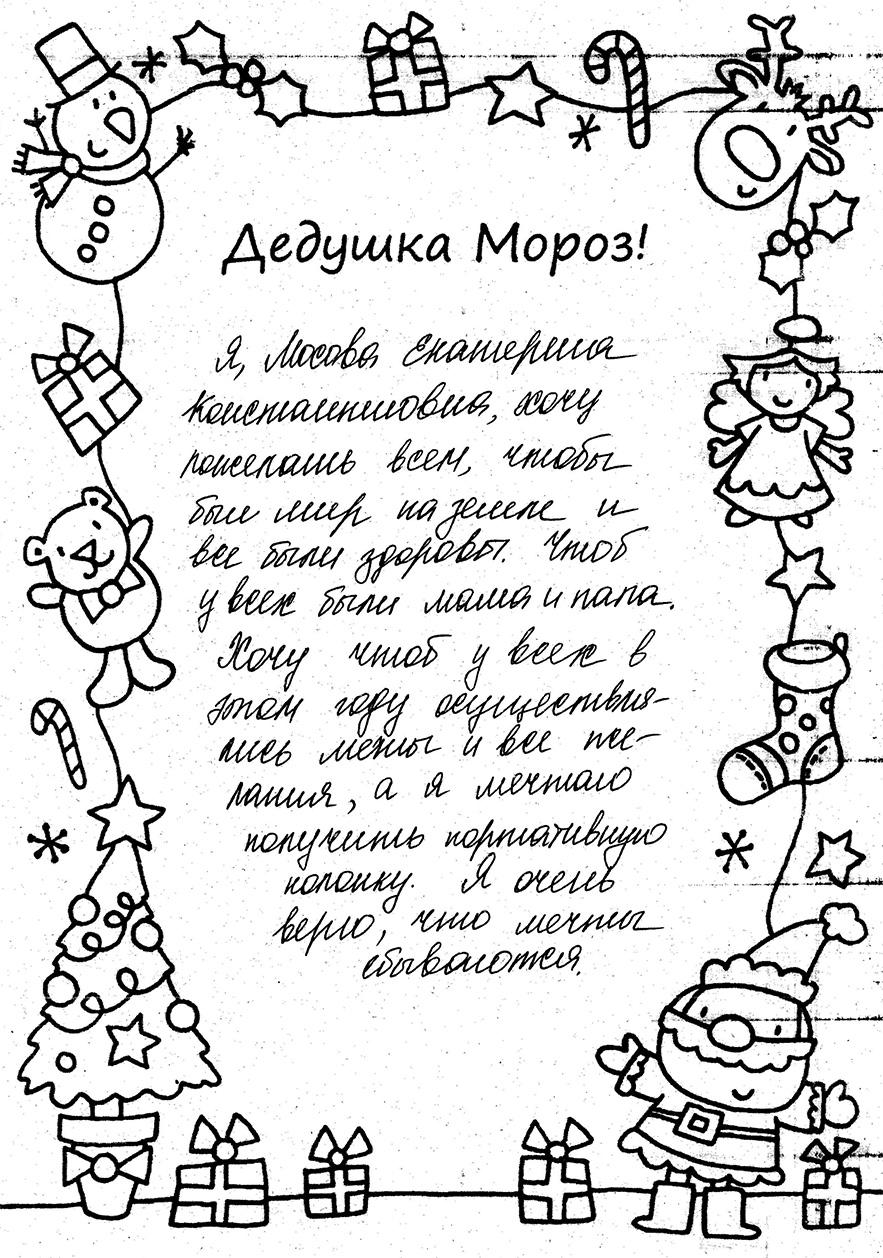 Дедушка Мороз!
Я, Мосова Екатерина
Константиновна, хочу
пожелать всем, чтобы
был мир на земле и
все были здоровы. Чтоб
у всех были мама и папа.
Хочу чтоб у всех в
этом году осуществля-
лись мечты и все же-
лания, а я мечтаю
получить портативную
колонку. Я очень
верю, что мечты
сбываются.